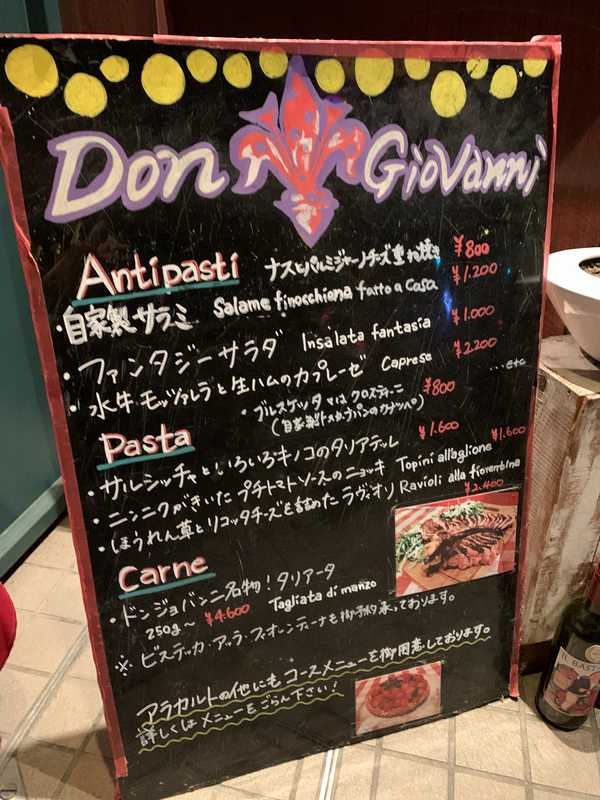 Don Giovanni
Antipasti
ナスとパルミジャーノチーズ重ね焼き ¥800
・自家製サラミ Salame finocchiona fatto a casa ¥1.200
・ファンタジーサラダ Insalata fantasia ¥1.000
・水牛モッツァレラと生ハムのカプレーゼ Caprese ¥2.200
・ブルスケッタまたはクロスティーニ ¥800 ...etc
(自家製トスカーナパンのカナッペ)
Pasta
・サルシッチャといろいろキノコのタリアテッレ ¥1.600
・ニンニクがきいたプチトマトソースのニョッキ Topini all'aglione ¥1.600
・ほうれん草とリコッタチーズを詰めたラヴィオリ Ravioli alla fiorentina
¥2.400
Carne
・ドンジョバンニ名物!タリアータ
250g〜 ¥4.600 Tagliata di manzo
※ ビステッカ・アッラ・フィオレンティーナも御予約承っております。
アラカルトの他にもコースメニューを御用意しております。
詳しくはメニューをごらん下さい!
IL BAST